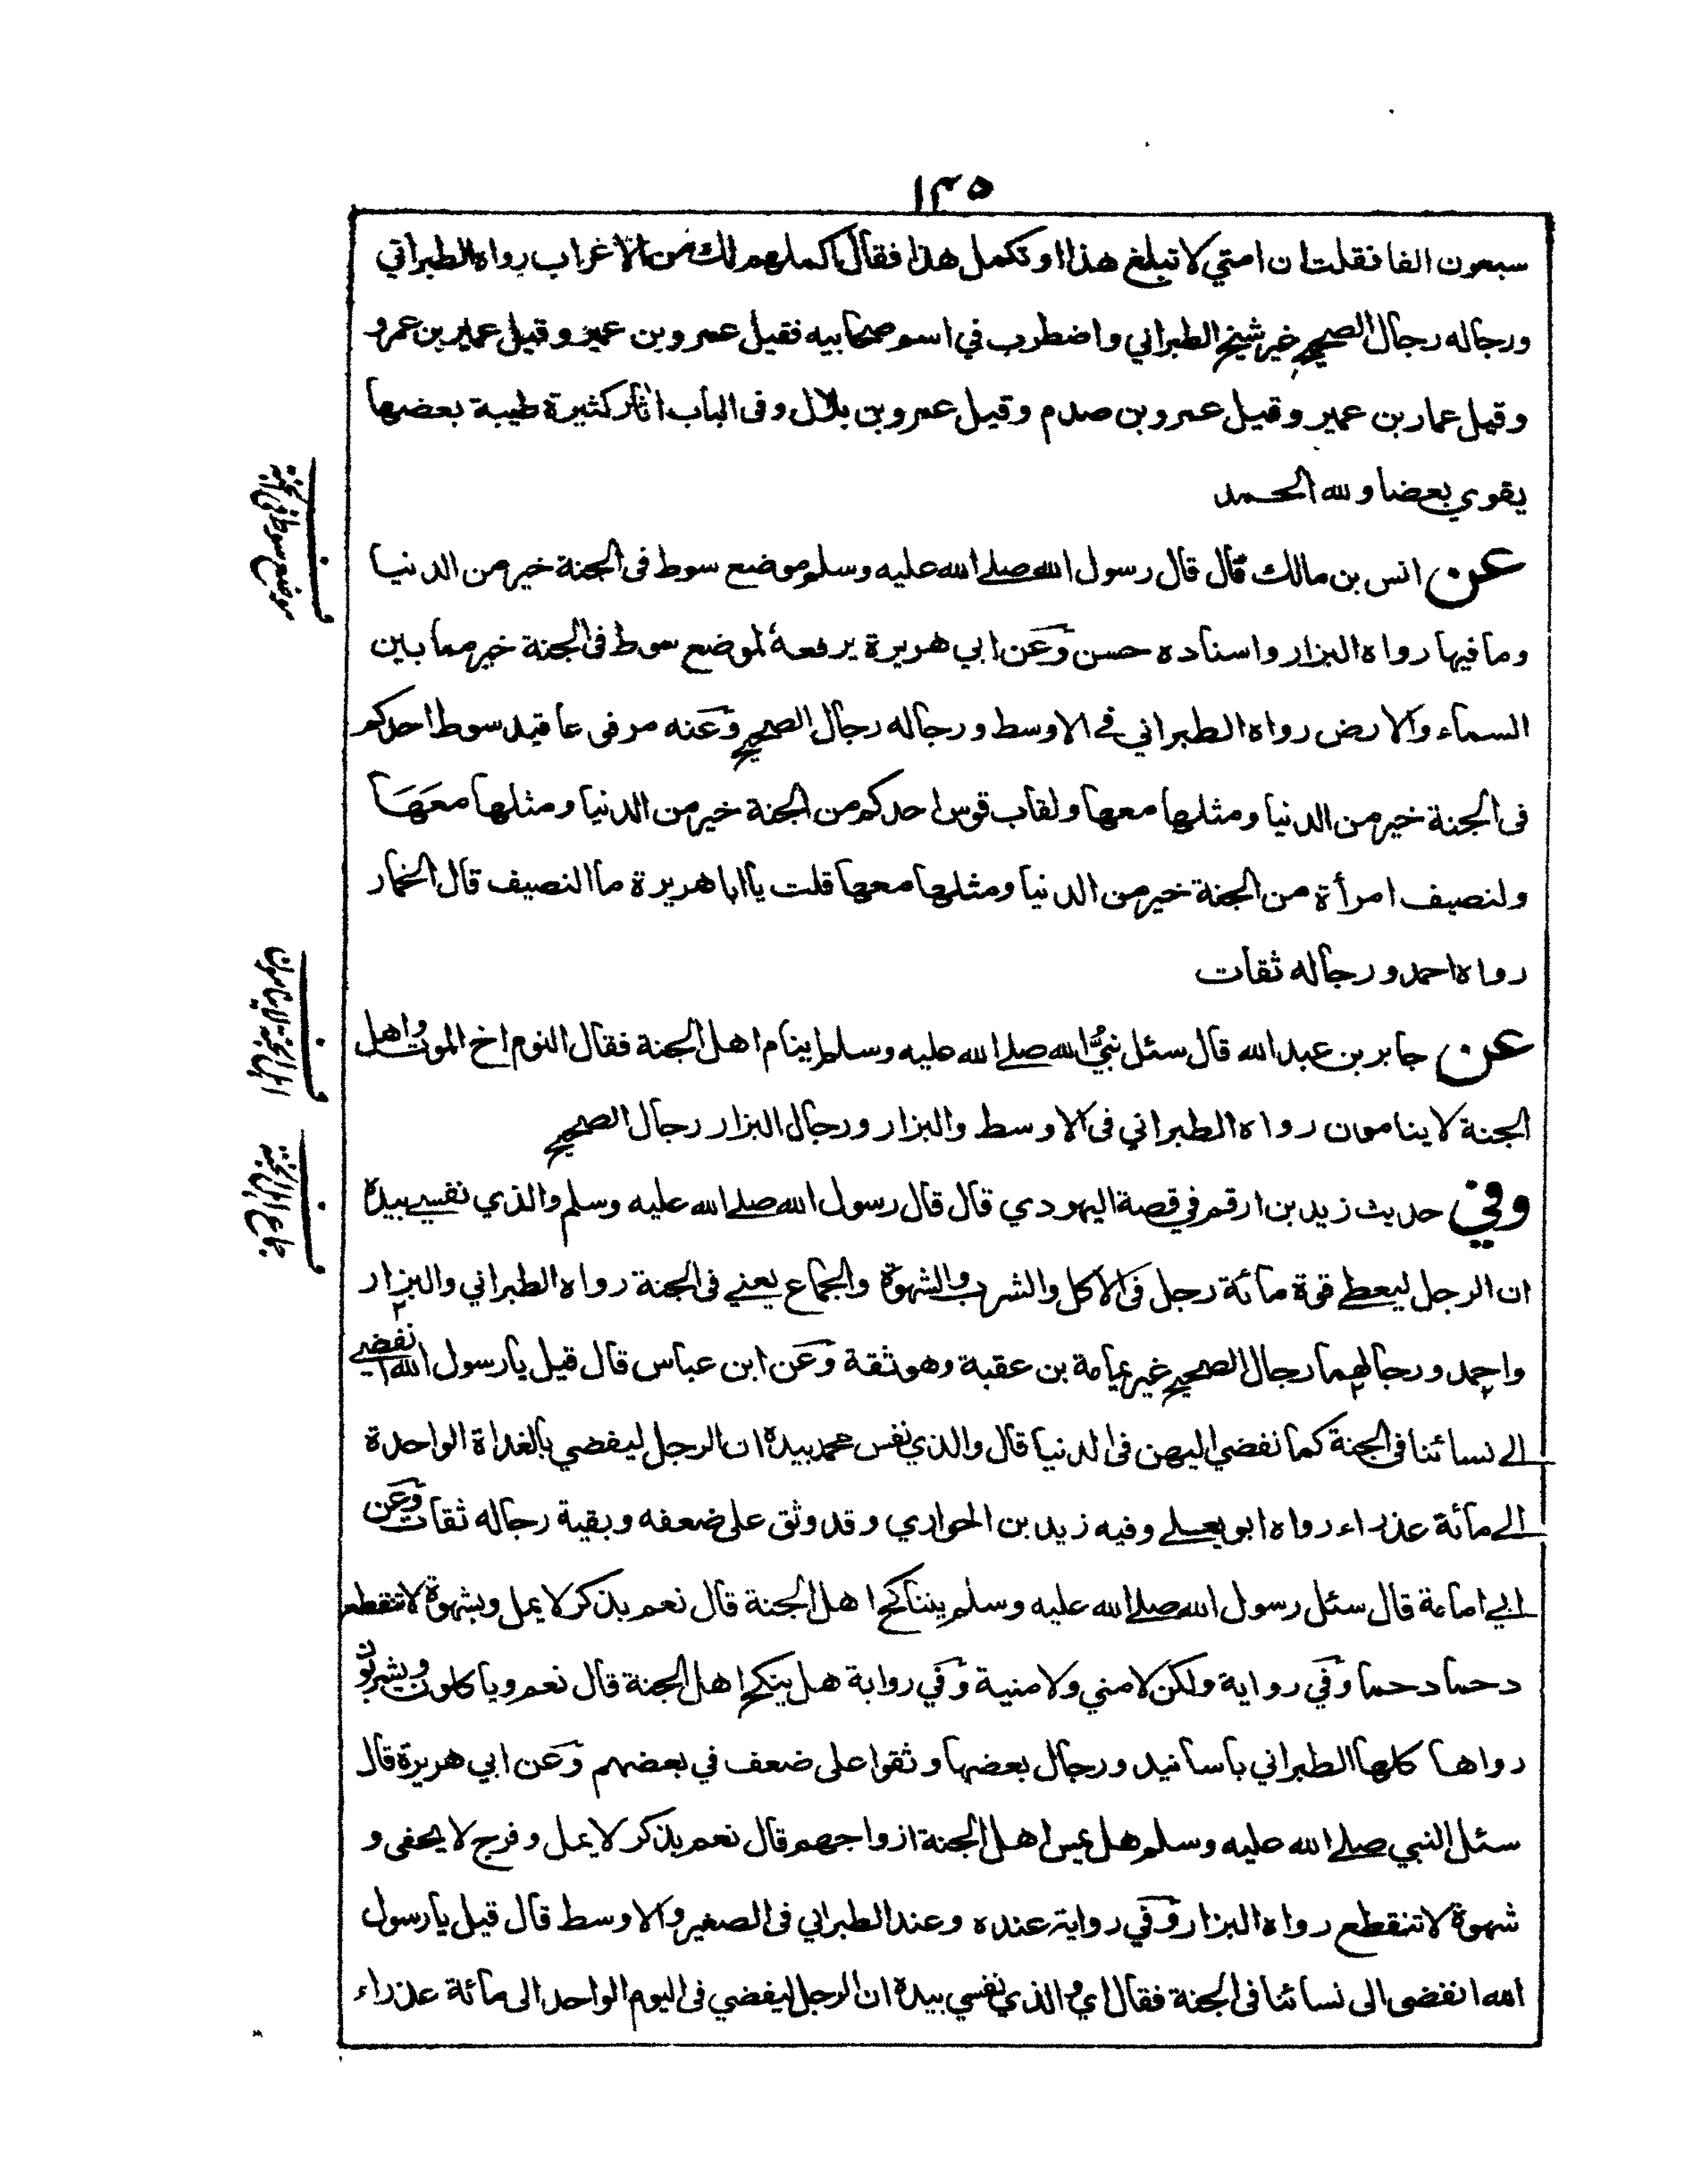 ١٣٥
سبعون الفا فقلت ان امتي لا تبلغ هذا او تكمل هذا فقال اكملهم لك من الاعراب رواه الطبراني
ورجاله رجال الصحيح غير شيخ الطبراني واضطرب في اسم صحابيه فقيل عمرو بن عمير وقيل عمير بن عمرو
وقيل عمار بن عمير وقيل عمرو بن صدم وقيل عمرو بن بلال وفى الباب اثار كثيرة طيبة بعضها
يقوي بعضا ولله الحمد
عن انس بن مالك قال قال رسول الله صلے الله عليه وسلم موضع سوط فى الجنة خير من الدنيا
وما فيها رواه البزار واسناده حسن وعن ابي هريرة يرفعه لموضع سوط فى الجنة خير مما بين
السماء والارض رواه الطبراني في الاوسط ورجاله رجال الصحيح وعنه مرفوعا قيد سوط احدكم
فى الجنة خير من الدنيا ومثلها معها ولقاب قوس احدكم من الجنة خير من الدنيا ومثلها معها
ولنصيف امرأة من الجنة خير من الدنيا ومثلها معها قلت يا ابا هريرة ما النصيف قال الخمار
رواه احمد ورجاله ثقات
عن جابر بن عبد الله قال سئل نبي الله صلے الله عليه وسلم اينام اهل الجنة فقال النوم اخ الموت واهل
الجنة لا ينامون رواه الطبراني فى الاوسط والبزار ورجال البزار رجال الصحيح
وفي حديث زيد بن ارقم في قصة اليهودي قال قال رسول الله صلے الله عليه وسلم والذي نفسي بيده
ان الرجل ليعطے قوة مائة رجل فى الاكل والشرب والشهوة والجماع يعنے فى الجنة رواه الطبراني والبزار
واحمد ورجالهما رجال الصحيح غير ثمامة بن عقبة وهو ثقة وعن ابن عباس قال قيل يا رسول الله انفضے
الے نسائنا فى الجنة كما نفضي اليهن فى الدنيا قال والذي نفس محمد بيده ان الرجل ليفضي بالغداة الواحدة
الے مائة عذراء رواه ابو يعلے وفيه زيد بن الحواري وقد وثق على ضعفه وبقية رجاله ثقات وعن
ابي امامة قال سئل رسول الله صلے الله عليه وسلم يتناكح اهل الجنة قال نعم بذكر لا يمل وبشهوة لا تنقطع
دحما دحما وفي رواية ولكن لا مني ولا منية وفي رواية هل ينكح اهل الجنة قال نعم وياكلون ويشربون
رواها كلها الطبراني باسانيد ورجال بعضها وثقوا على ضعف في بعضهم وعن ابي هريرة قال
سئل النبي صلے الله عليه وسلم هل يمس اهل الجنة ازواجهم قال نعم بذكر لا يمل وفرج لا يحفى و
شهوة لا تنقطع رواه البزار وفي رواية عنده وعند الطبراني فى الصغير والاوسط قال قيل يا رسول
الله انفضى الى نسائنا فى الجنة فقال اي والذي نفسي بيده ان الرجل ليفضي فى اليوم الواحد الى مائة عذراء
ف موضع سوط فى الجنة
ف اهل الجنة لا ينامون
ف جماع اهل الجنة